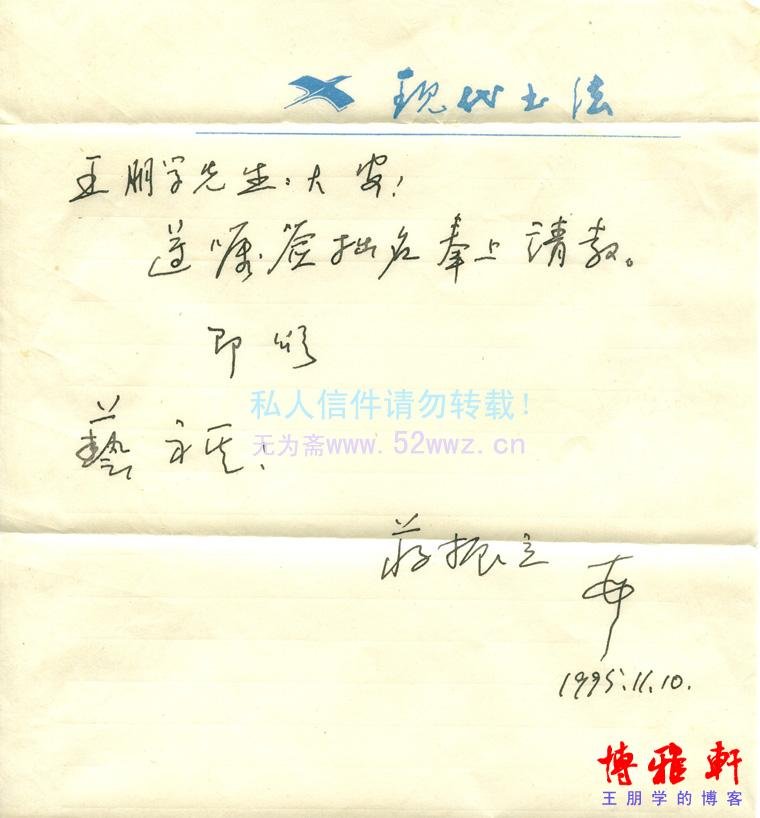 现代书法
王朋学先生:大安!
遵嘱签拙名奉上请教。
即颂
藝祺!
私人信件请勿转载!
无为斋www.52wwz.cn
蒋振立
1995.11.10.
博雅軒
王朋学的博客